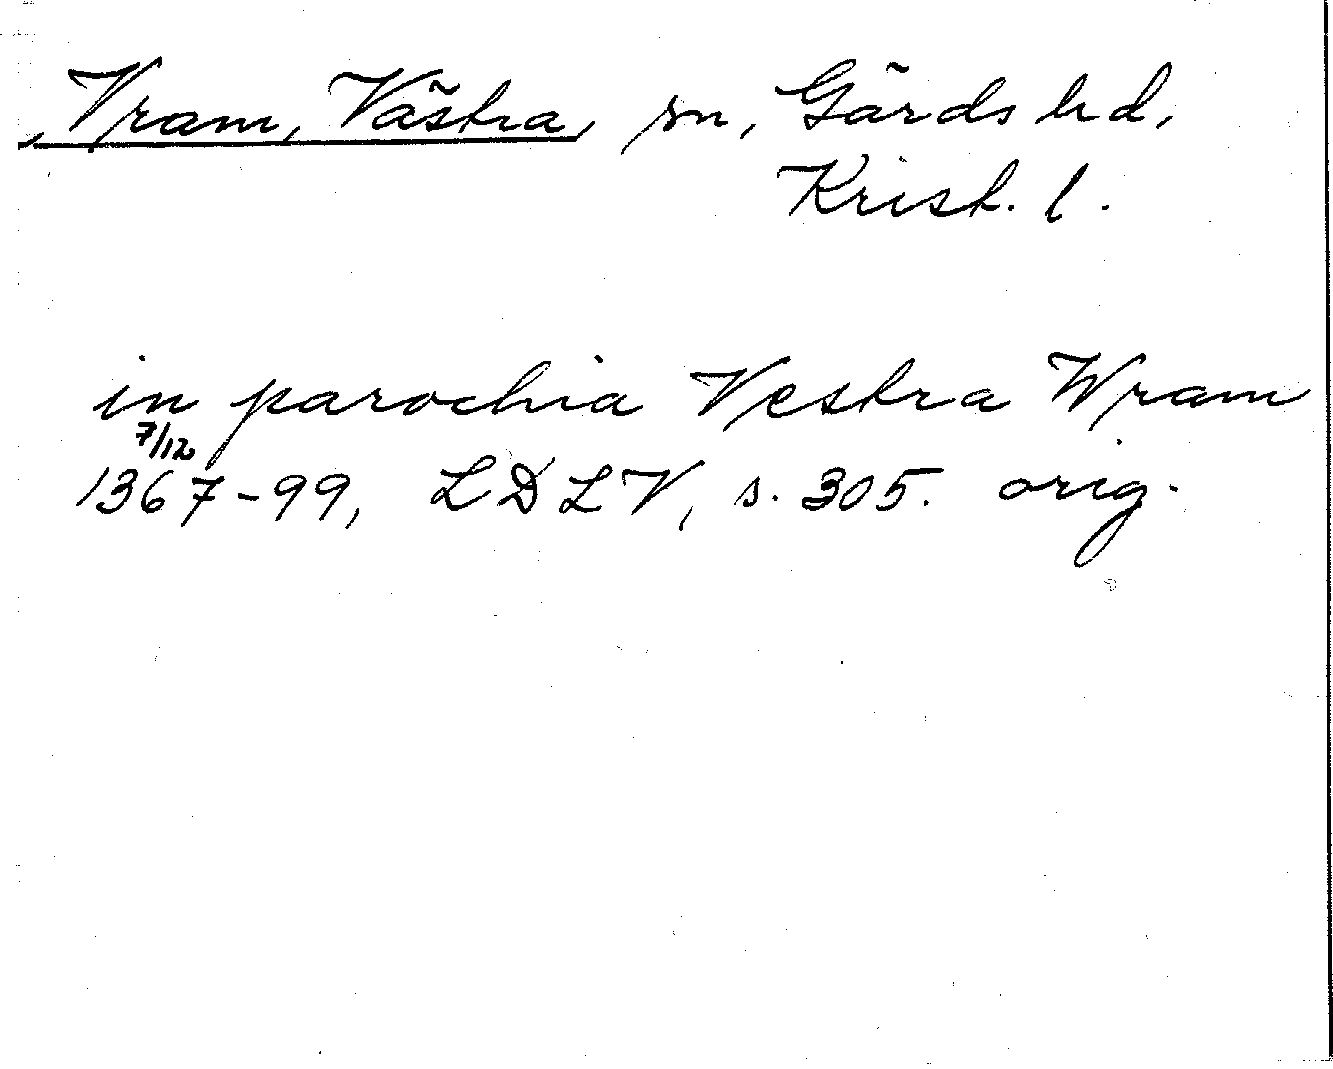 Vram, Västra, sn, Gärds hd,
Krist. l.
in parochia Vestra Wram
7/12
1367-99, LDLV, s. 305. orig.